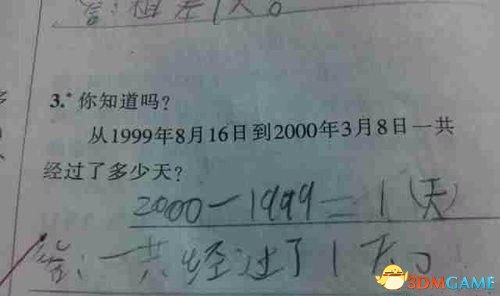 答：相差1天。
3.* 你知道吗？
从1999年8月16日到2000年3月8日一共
经过了多少天？
2000－1999＝1（天）
答：一共经过了1天。
3DMGAME